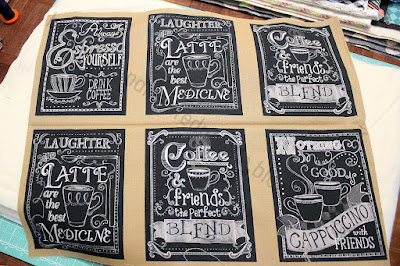 Always
Espresso
YOURSELF
DRINK
COFFEE
LAUGHTER
and
LATTE
are the
best
MEDICINE
Coffee
&
friends
the perfect
BLEND
LAUGHTER
and
LATTE
are the
best
MEDICINE
Coffee
&
friends
the perfect
BLEND
NOTHING
as
GOOD
as
CAPPUCCINO
with
FRIENDS